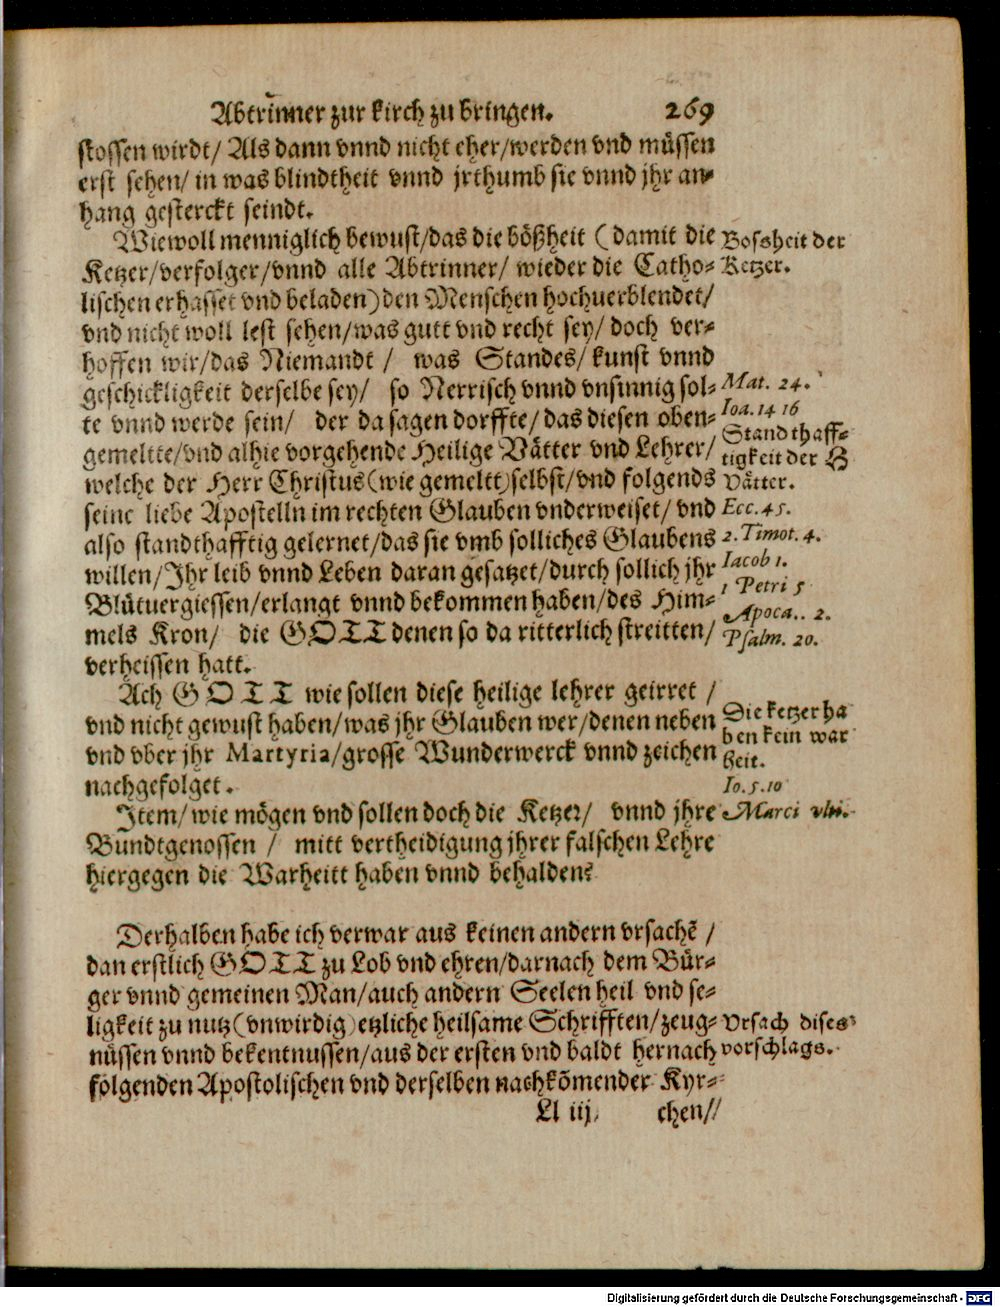 Abtrinner zur kirch zu bringen. 269
stossen wirdt/ Als dann vnnd nicht eher/werden vnd müssen
erst sehen/ in was blindtheit vnnd jrthumb sie vnnd jhr an-
hang gesterckt seindt.
Wiewoll menniglich bewust/das die bößheit (damit die
Bossheit der
Ketzer/verfolger/vnnd alle Abtrinner/ wieder die Catho-
Ketzer.
lischen erhasset vnd beladen) den Menschen hochuerblendet/
vnd nicht woll lest sehen/was gutt vnd recht sey/ doch ver-
hoffen wir/das Niemandt / was Standes/ kunst vnnd
geschickligkeit derselbe sey/ so Nerrisch vnnd vnsinnig sol-
Mat. 24.
te vnnd werde sein/ der da sagen dorffte/ das diesen oben-
Ioa. 14 16
gemeltte/vnd alhie vorgehende Heilige Vätter vnd Lehrer/
Standthaff-
tigkeit der H
welche der Herr Christus (wie gemeltt) selbst/vnd folgends
Vätter.
seine liebe Apostelln im rechten Glauben vnderweiset/ vnd
Ecc. 45.
also standthafftig gelernet/das sie vmb solliches Glaubens
2. Timot. 4.
willen/Ihr leib vnnd Leben daran gesatzet/durch sollich jhr
Iacob 1.
1 Petri 5
Blütuergiessen/erlangt vnnd bekommen haben/des Him-
Apoca.. 2.
mels Kron/ die GOTT denen so da ritterlich streitten/
Psalm. 20.
verheissen hatt.
Ach GOTT wie sollen diese heilige lehrer geirret /
vnd nicht gewust haben/was jhr Glauben wer/denen neben
Die ketzer ha
ben kein war
vnd vber jhr Martyria/grosse Wunderwerck vnnd zeichen
heit.
nachgefolget.
Io. 5. 10
Item/ wie mögen vnd sollen doch die Ketzer/ vnnd jhre
Marci vlti.
Bundtgenossen / mitt vertheidigung jhrer falschen Lehre
hiergegen die Warheitt haben vnnd behalden?
Derhalben habe ich verwar aus keinen andern vrsachẽ /
dan erstlich GOTT zu Lob vnd ehren/darnach dem Bür-
ger vnnd gemeinen Man/auch andern Seelen heil vnd se-
ligkeit zu nutz (vnwirdig) etzliche heilsame Schrifften/zeug-
Vrsach dises
nüssen vnnd bekentnussen/aus der ersten vnd baldt hernach
vorschlags.
folgenden Apostolischen vnd derselben nachkõmender Kyr-
Ll iij. chen//
Digitalisierung gefördert durch die Deutsche Forschungsgemeinschaft - DFG